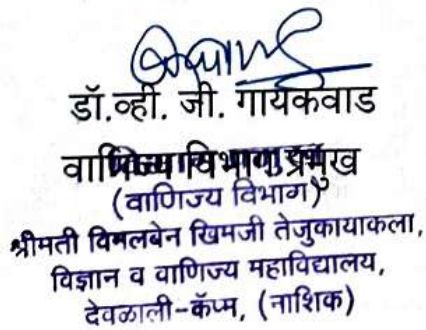 डॉ.व्ही. जी. गायकवाड
वाणिज्य विभाग प्रमुख
(वाणिज्य विभाग)
श्रीमती विमलबेन खिमजी तेजुकायाकला,
विज्ञान व वाणिज्य महाविद्यालय,
देवळाली-कॅम्प, (नाशिक)